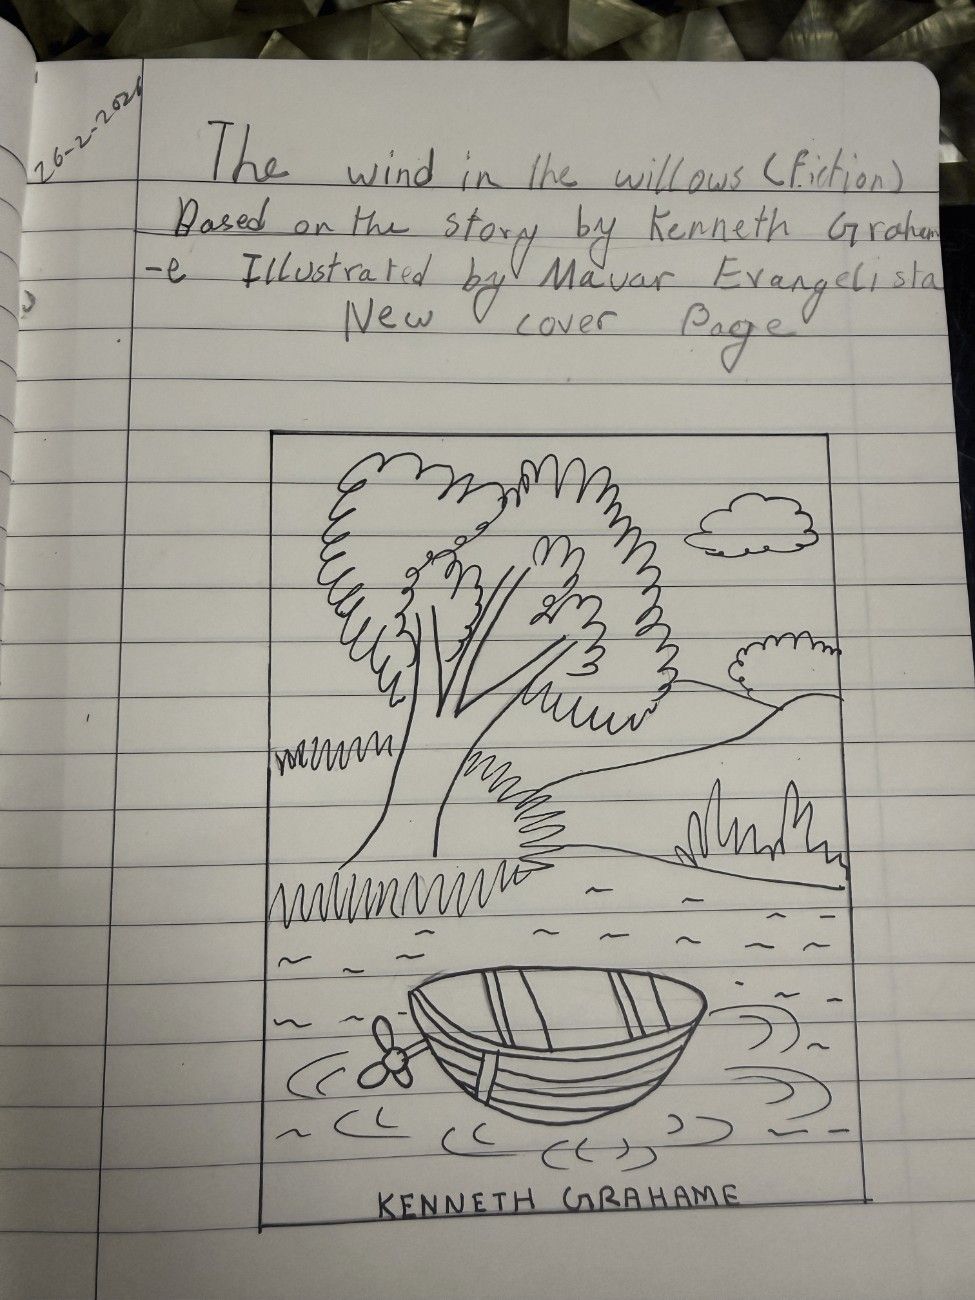 26-2-2026
The wind in the willows (fiction)
Based on the story by Kenneth Graham
-e Illustrated by Mavar Evangelista
New cover Page
KENNETH GRAHAME